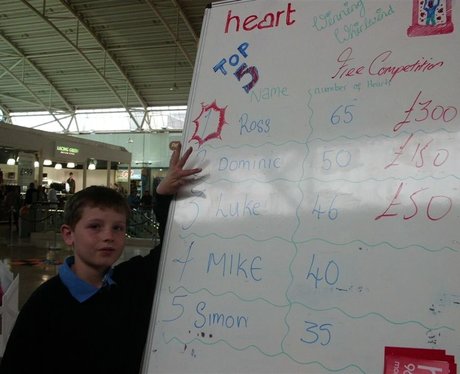 heart
Winning
Whirlwind
TOP
5
Free Competition
Name number of Hearts
1 Ross 65 £300
2 Dominic 50 £150
3 Luke 46 £50
4 MIKE 40
5 Simon 35